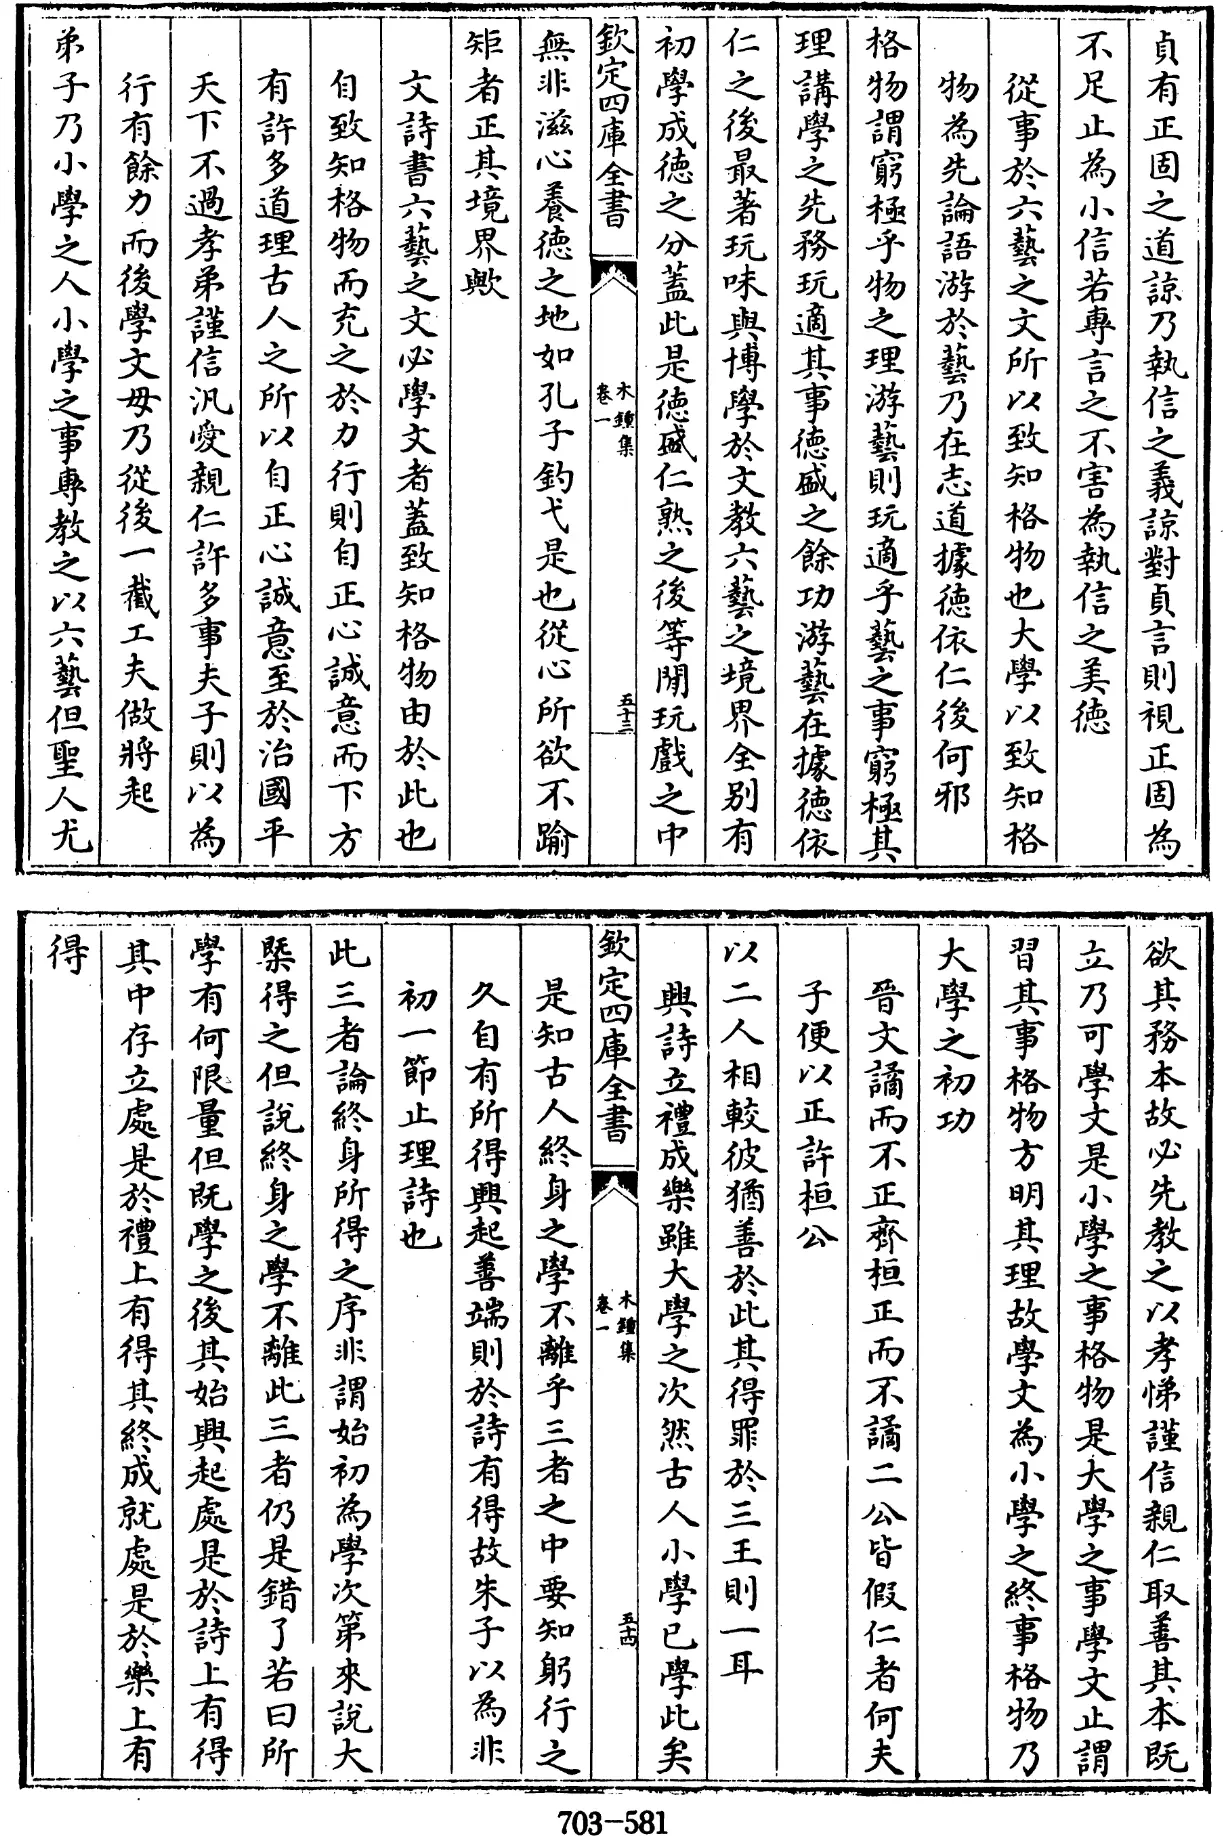 貞有正固之道諒乃執信之義諒對貞言則視正固為
不足止為小信若專言之不害為執信之美德
從事於六藝之文所以致知格物也大學以致知格
物為先論語游於藝乃在志道據德依仁後何邪
格物謂窮極乎物之理游藝則玩適乎藝之事窮極其
理講學之先務玩適其事德盛之餘功游藝在據德依
仁之後最著玩味與博學於文教六藝之境界全别有
初學成德之分蓋此是德盛仁熟之後等閒玩戲之中
欽定四庫全書
木鍾集
卷一
五十三
無非滋心養德之地如孔子釣弋是也從心所欲不踰
矩者正其境界歟
文詩書六藝之文必學文者蓋致知格物由於此也
自致知格物而充之於力行則自正心誠意而下方
有許多道理古人之所以自正心誠意至於治國平
天下不過孝弟謹信汎愛親仁許多事夫子則以為
行有餘力而後學文毋乃從後一截工夫做將起
弟子乃小學之人小學之事專教之以六藝但聖人尤
欲其務本故必先教之以孝悌謹信親仁取善其本既
立乃可學文是小學之事格物是大學之事學文止謂
習其事格物方明其理故學文為小學之終事格物乃
大學之初功
晉文譎而不正齊桓正而不譎二公皆假仁者何夫
子便以正許桓公
以二人相較彼猶善於此其得罪於三王則一耳
興詩立禮成樂雖大學之次然古人小學已學此矣
欽定四庫全書
木鍾集
卷一
五十四
是知古人終身之學不離乎三者之中要知躬行之
久自有所得興起善端則於詩有得故朱子以為非
初一節止理詩也
此三者論終身所得之序非謂始初為學次第來說大
槩得之但說終身之學不離此三者仍是錯了若曰所
學有何限量但既學之後其始興起處是於詩上有得
其中存立處是於禮上有得其終成就處是於樂上有
得
703-581